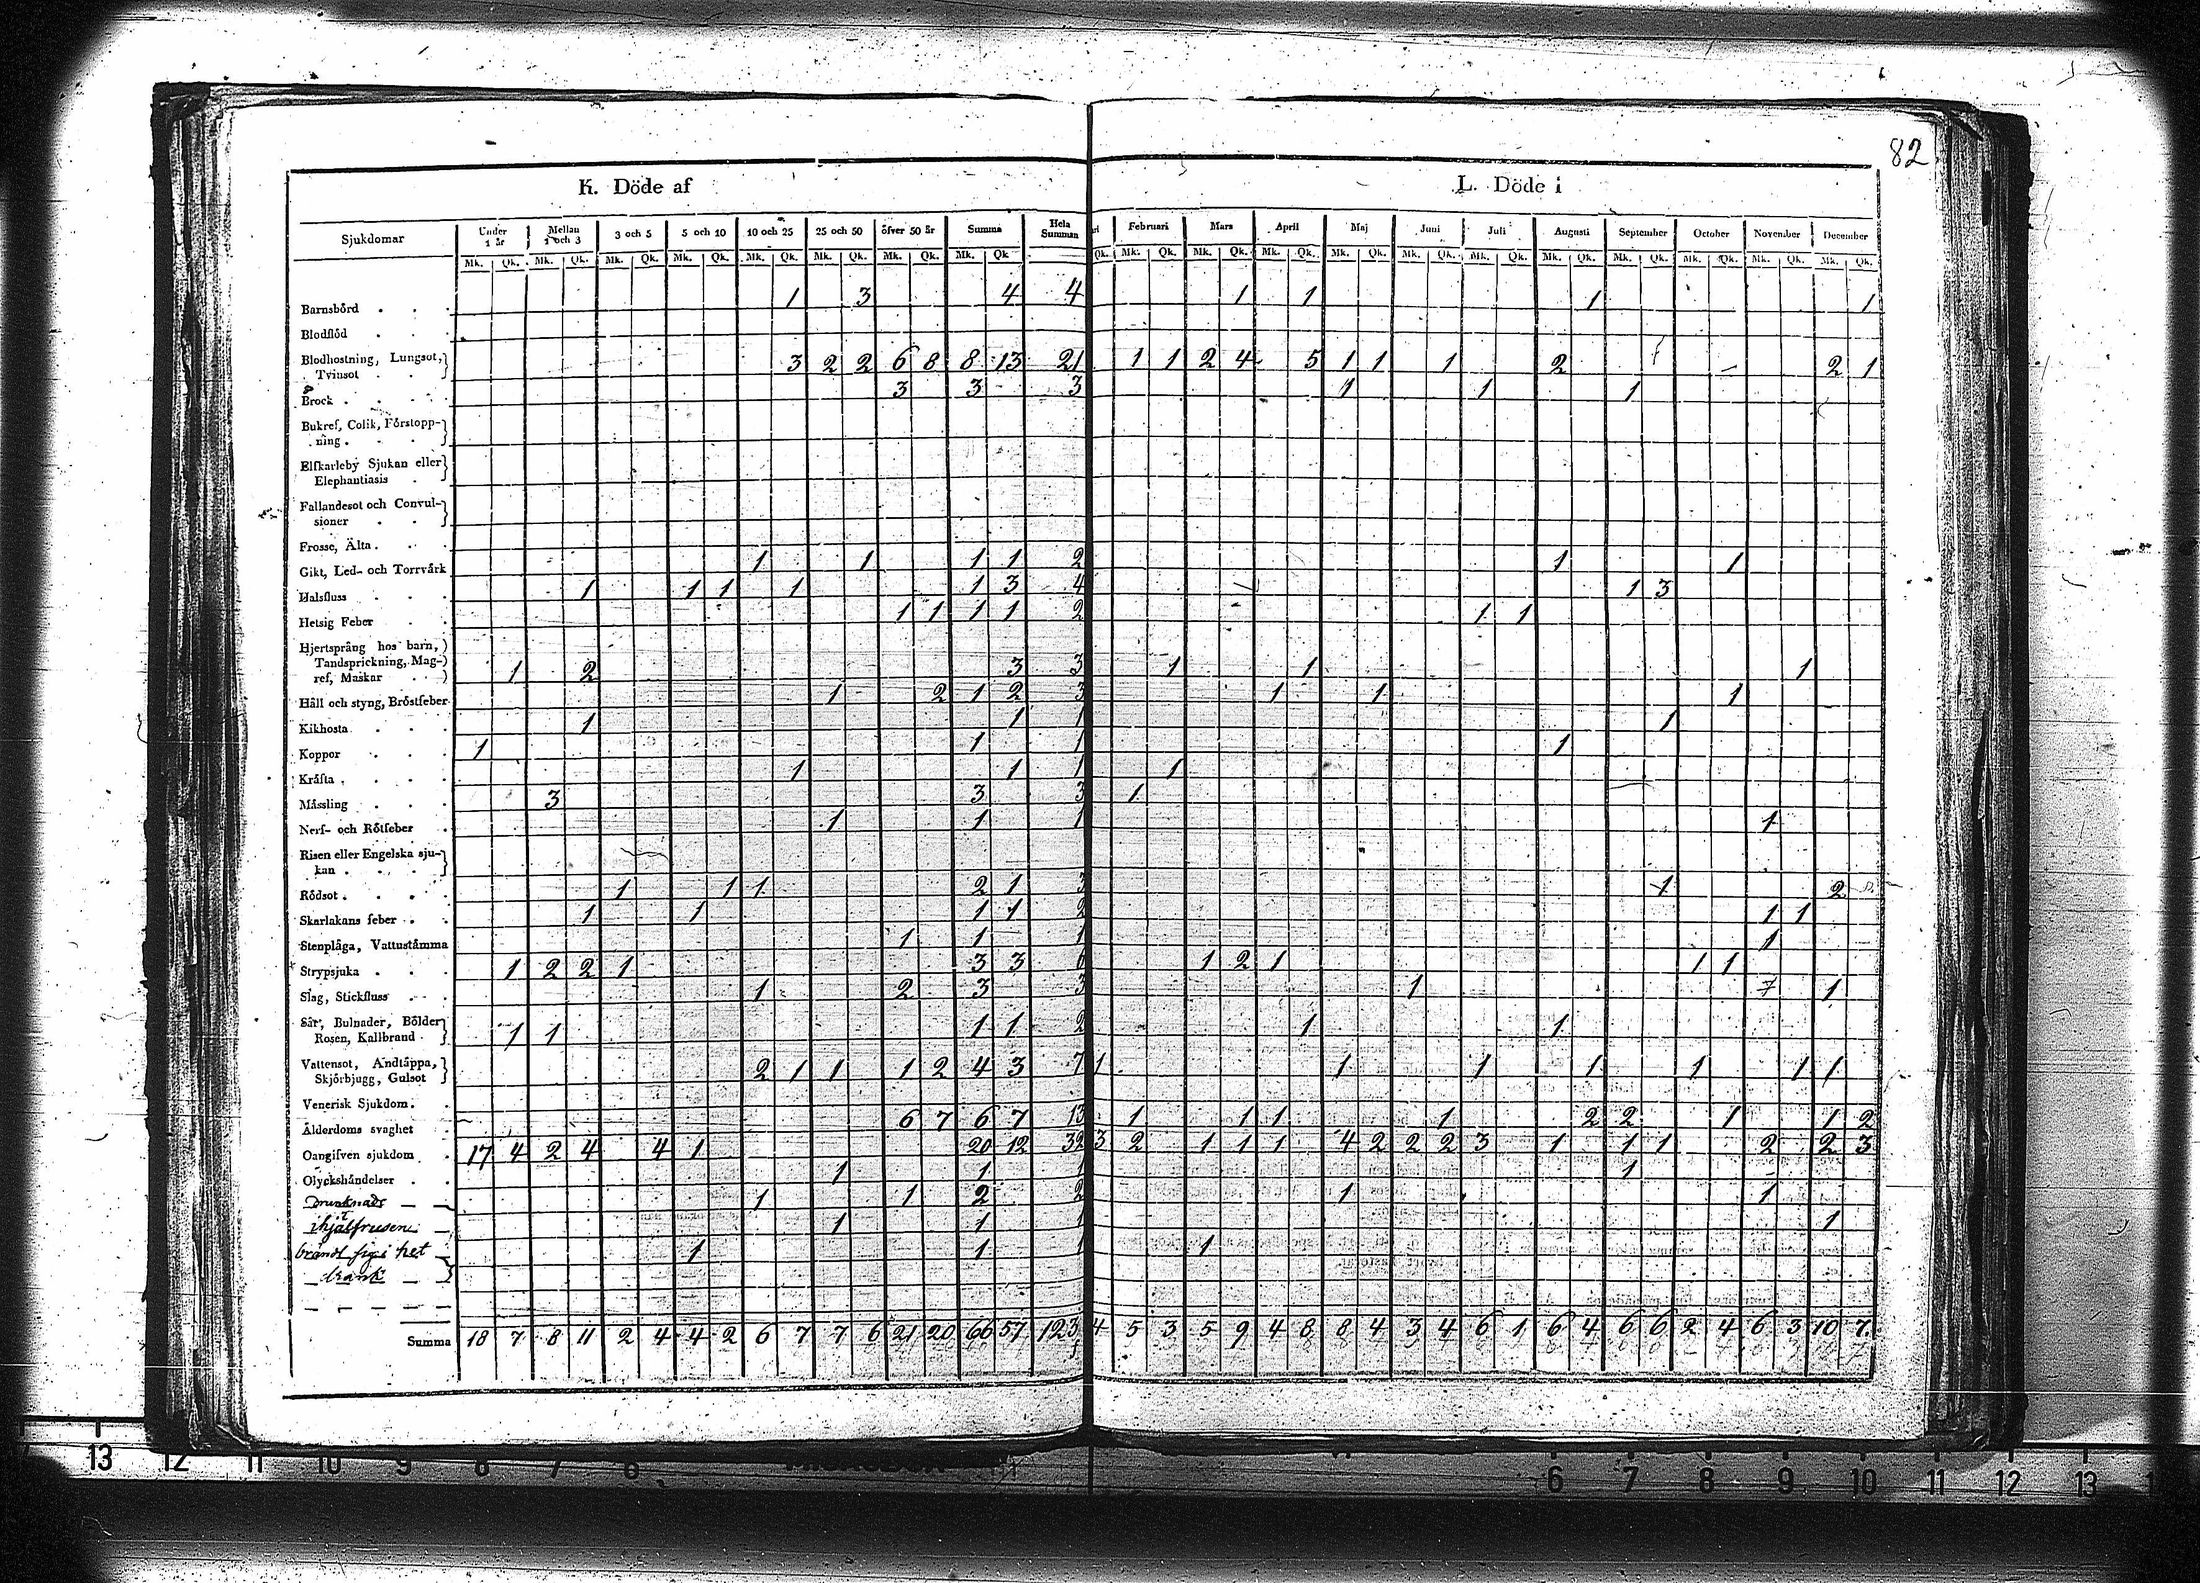 82
K. Döde af L. Döde i
Sjukdomar Under 1 år Mellan 1 och 3 3 och 5 5 och 10 10 och 25 25 och 50 öfver 50 år Summa Hela Summan ri Februari Mars April Maj Juni Juli Augusti September October November December
Mk. Qk. Mk. Qk. Mk. Qk. Mk. Qk. Mk. Qk. Mk. Qk. Mk. Qk. Mk. Qk Qk. Mk. Qk. Mk. Qk. Mk. Qk. Mk. Qk. Mk. Qk. Mk. Qk. Mk. Qk. Mk. Qk. Mk. Qk. Mk. Qk. Mk. Qk.
Barnsbörd 1 3 4 4 1 1 1 1
Blodflöd
Blodhostning, Lungsot,
Tvinsot 3 2 2 6 8 8 13 21 1 1 2 4 5 1 1 1 2 2 1
Brock 3 3 3 1 1 1
Bukref, Colik, Förstopp-
ning
Elfkarleby Sjukan eller
Elephantiasis
Fallandesot och Convul-
sioner
Frosse, Älta
Gikt, Led- och Torrvärk 1 1 1 1 2 1 1
Halsfluss 1 1 1 1 1 3 4 1 3
Hetsig Feber 1 1 1 1 2 1 1
Hjertsprång hos barn,
Tandsprickning, Mag-
ref, Maskar 1 2 3 3 1 1 1
Håll och styng, Bröstfeber 1 2 1 2 3 1 1 1
Kikhosta 1 1 1 1
Koppor 1 1 1 1
Kräfta 1 1 1 1
Mässling 3 3 3 1
Nerf- och Rötfeber 1 1 1 1
Risen eller Engelska sju-
kan
Rödsot 1 1 1 2 1 3 1 2
Skarlakans feber 1 1 1 1 2 1 1
Stenplåga, Vattustämma 1 1 1 1
Strypsjuka 1 2 2 1 3 3 6 1 2 1 1 1
Slag, Stickfluss 1 2 3 3 1 1
Sår, Bulnader, Bölder
Rosen, Kallbrand 1 1 1 1 2 1 1
Vattensot, Andtäppa,
Skjörbjugg, Gulsot 2 1 1 1 2 4 3 7 1 1 1 1 1 1 1
Venerisk Sjukdom
Ålderdoms svaghet 6 7 6 7 13 1 1 1 1 2 2 1 1 2
Oangifven sjukdom 17 4 2 4 4 1 20 12 32 3 2 1 1 1 4 2 2 2 3 1 1 1 2 2 3
Olyckshändelser 1 1 1 1
Drunknade 1 1 2 2 1 1
ihjälfrusen 1 1 1 1
bränd sig i het 1 1 1 1
drank
Summa 18 7 8 11 2 4 4 2 6 7 7 6 21 20 66 57 123 4 5 3 5 9 4 8 8 4 3 4 6 1 6 4 6 6 2 4 6 3 10 7
13 12 11 10 9 8 7 6 6 7 8 9 10 11 12 13